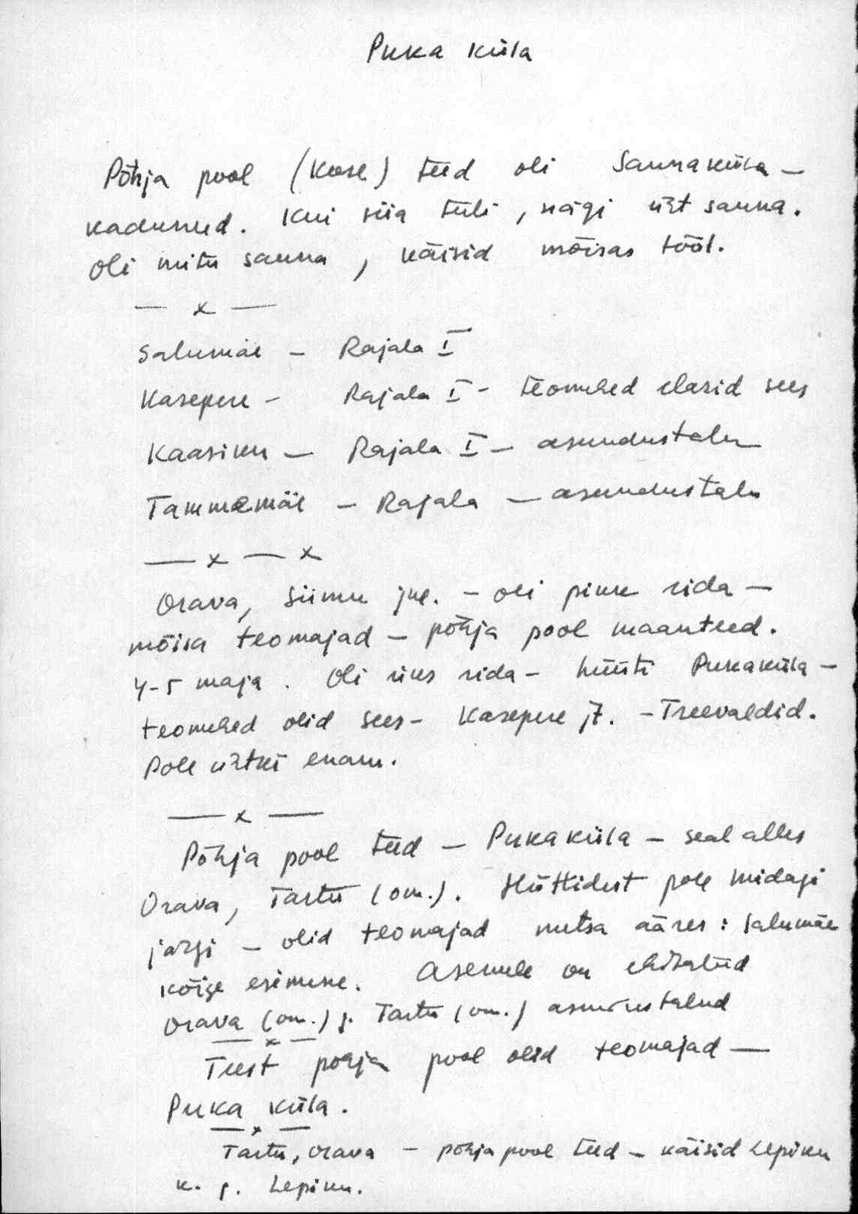 Puka küla
Põhja pool (Kose) teed oli Saunaküla –
kadunud. Kui siia tuli, nägi üht sauna.
Oli mitu sauna, käisid mõisas tööl.
— x —
Salumäe – Rajala I
Kasepere – Rajala I – teomehed elasid sees
Kaasiku – Rajala I – asundustalu
Tammemäe – Rajala – asundustalu
— x — x
Orava, Siimu jne. – oli pikk rida –
mõisa teomajad – põhja pool maanteed.
4-5 maja. Oli üks rida – hüüti Pukaküla –
teomehed olid sees – Kasepere jt. – Treevaldid.
Pole ühtki enam.
— x —
Põhja pool teed – Pukaküla – seal alles
Orava, Tartu (om.). Hüttidest pole midagi
järgi – olid teomajad metsa ääres: Salumäe
kõige esimene. Asemele on ehitatud
Orava (om.) j. Tartu (om.) asundustalud
— x —
Teest põhja pool olid teomajad —
Puka küla.
— x —
Tartu, Orava – põhja pool teed – käisid Lepiku
k. j. Lepiku.